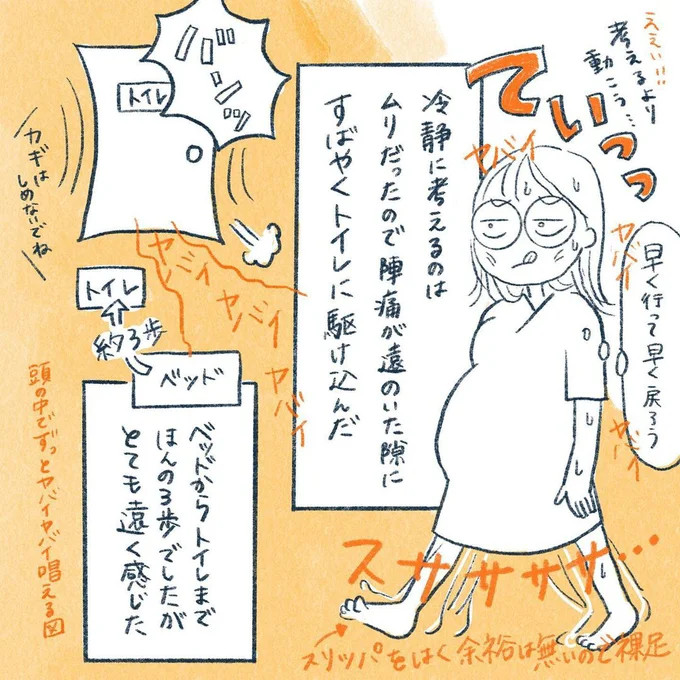 ええい!!
考えるより
動こう…
ていっっ
冷静に考えるのは
ムリだったので陣痛が遠のいた隙に
すばやくトイレに駆け込んだ
ヤバイ
ヤバイ
ヤバイ
早く行って早く戻ろう
ススササササ…
スリッパをはく余裕は無いので裸足
バババッ
トイレ
カギは
しめないでね
ヤバイ
ヤバイ
ヤバイ
トイレ
約3歩
ベッド
ベッドからトイレまで
ほんの3歩でしたが
とても遠く感じた
頭の中でずっとヤバイヤバイ唱える図